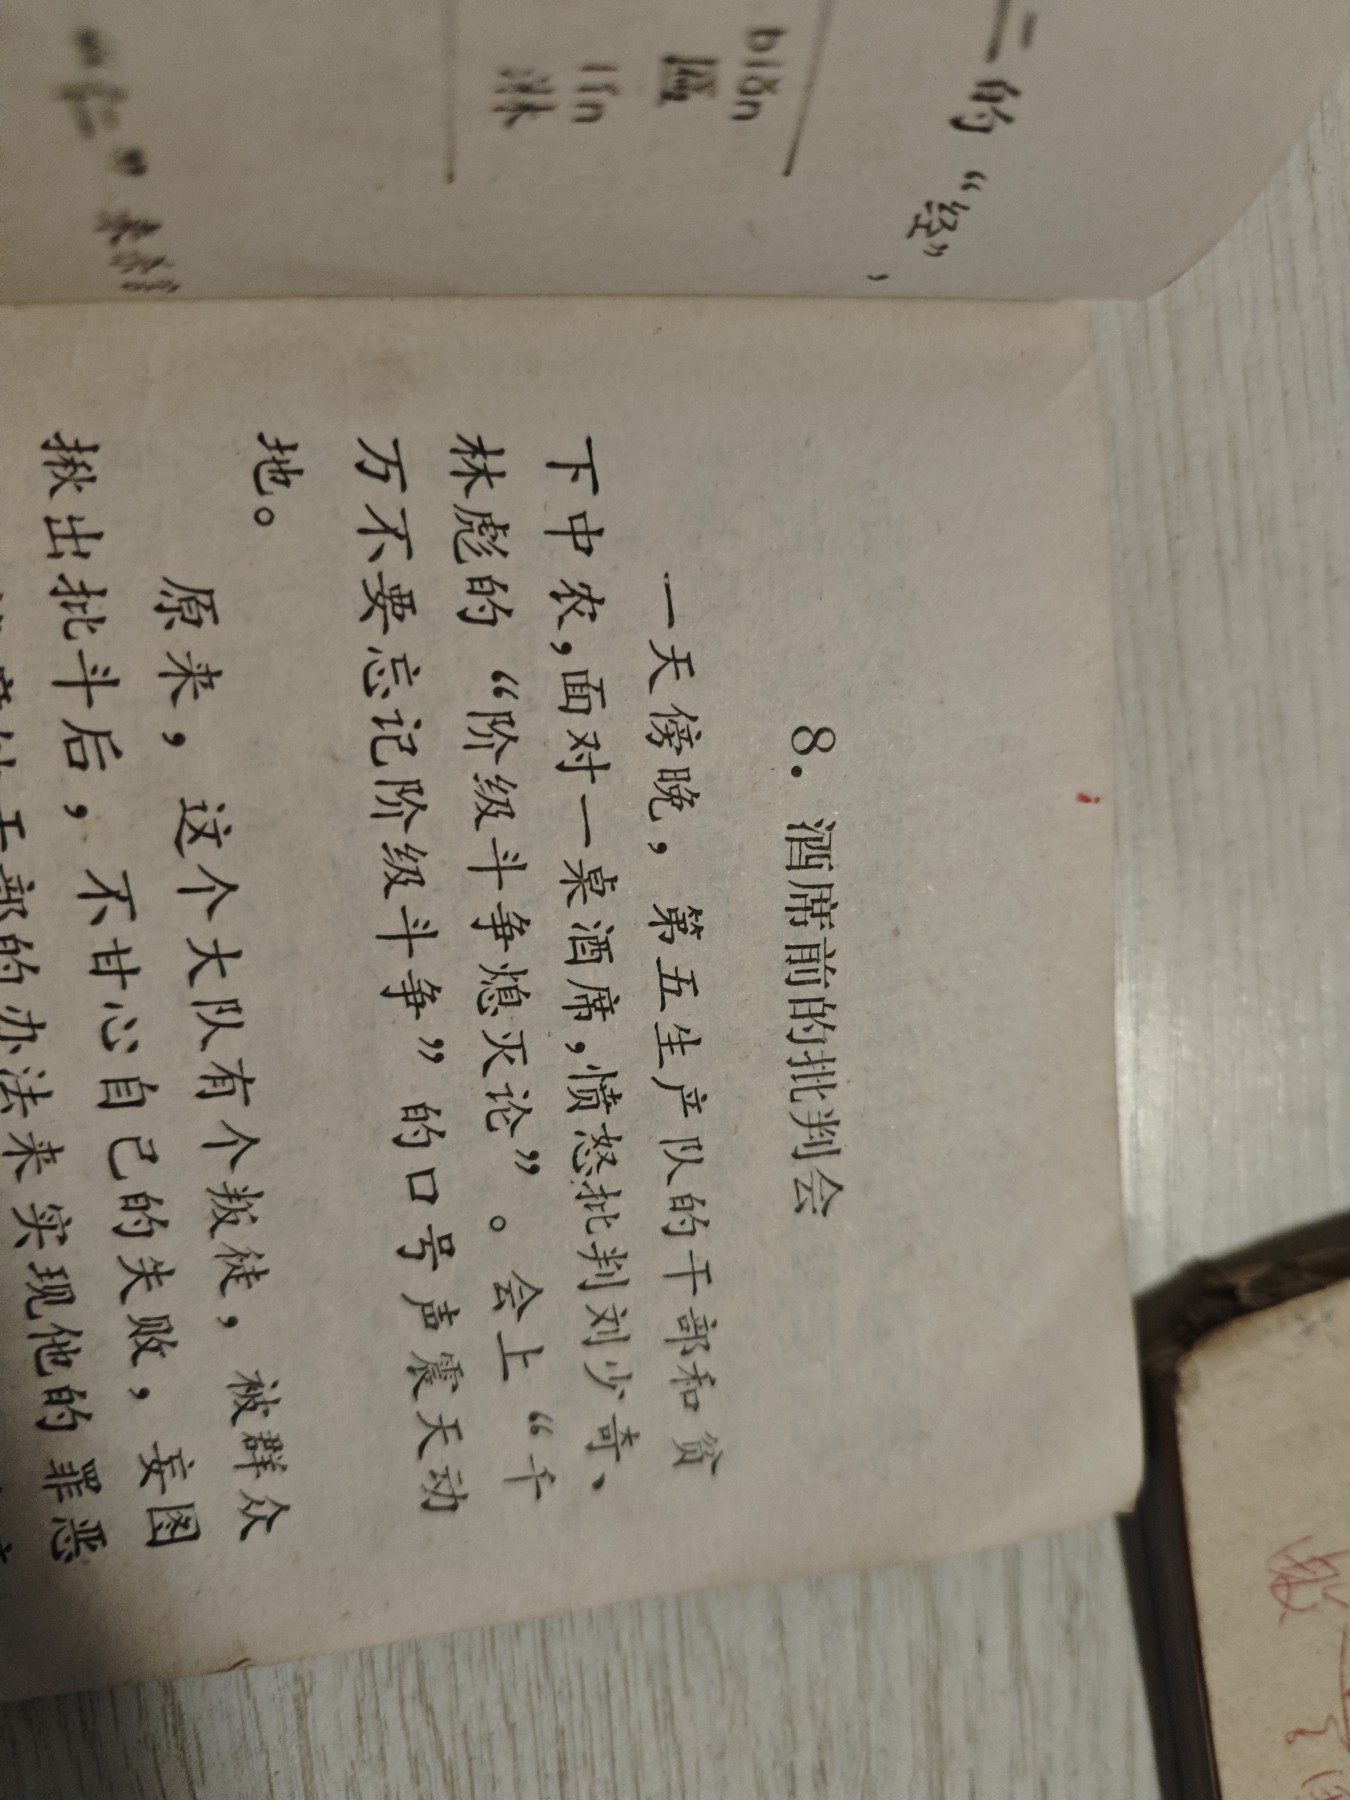 二的“经”，
biǎn lín
匾 淋
8. 酒席前的批判会
一天傍晚，第五生产队的干部和贫
下中农，面对一桌酒席，愤怒批判刘少奇、
林彪的“阶级斗争熄灭论”。会上“千
万不要忘记阶级斗争”的口号声震天动
地。
原来，这个大队有个叛徒，被群众
揪出批斗后，不甘心自己的失败，妄图
干部的办法来实现他的罪恶